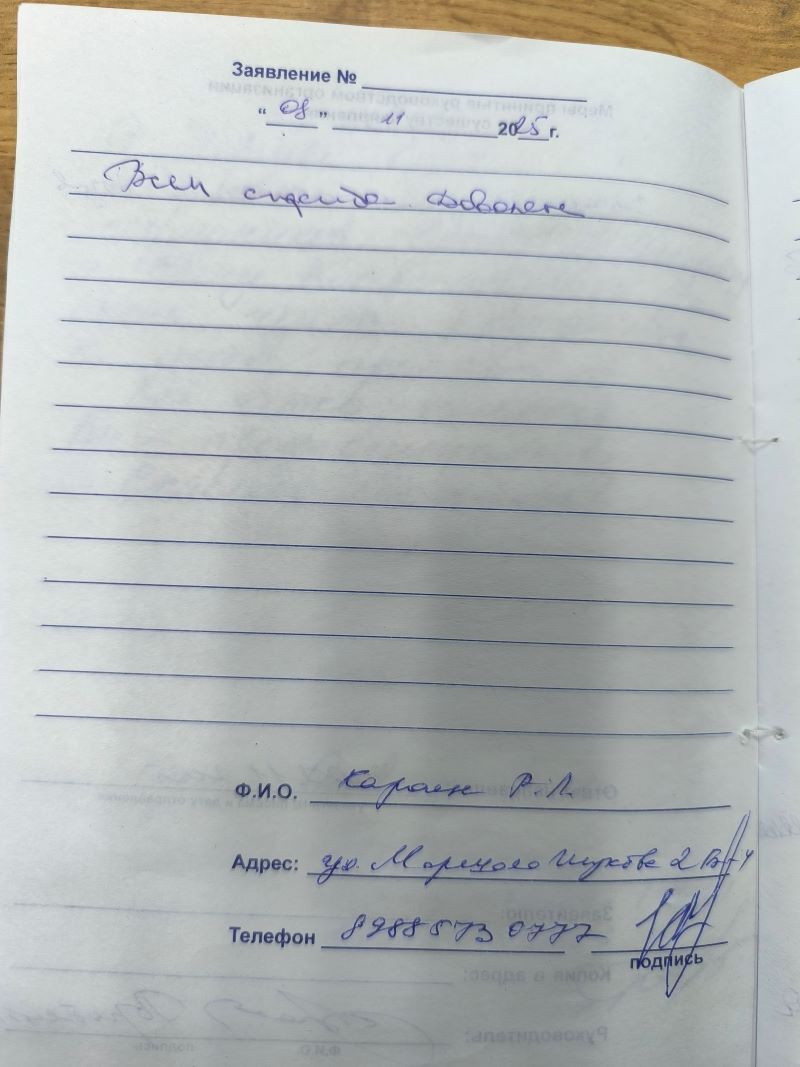 Заявление №
"08" 11 2025 г.
Всем спасибо. Довольна
Ф.И.О. Р.Л.
Адрес: ул. Маршала Жукова 2
Телефон 8988573 0777
подпись